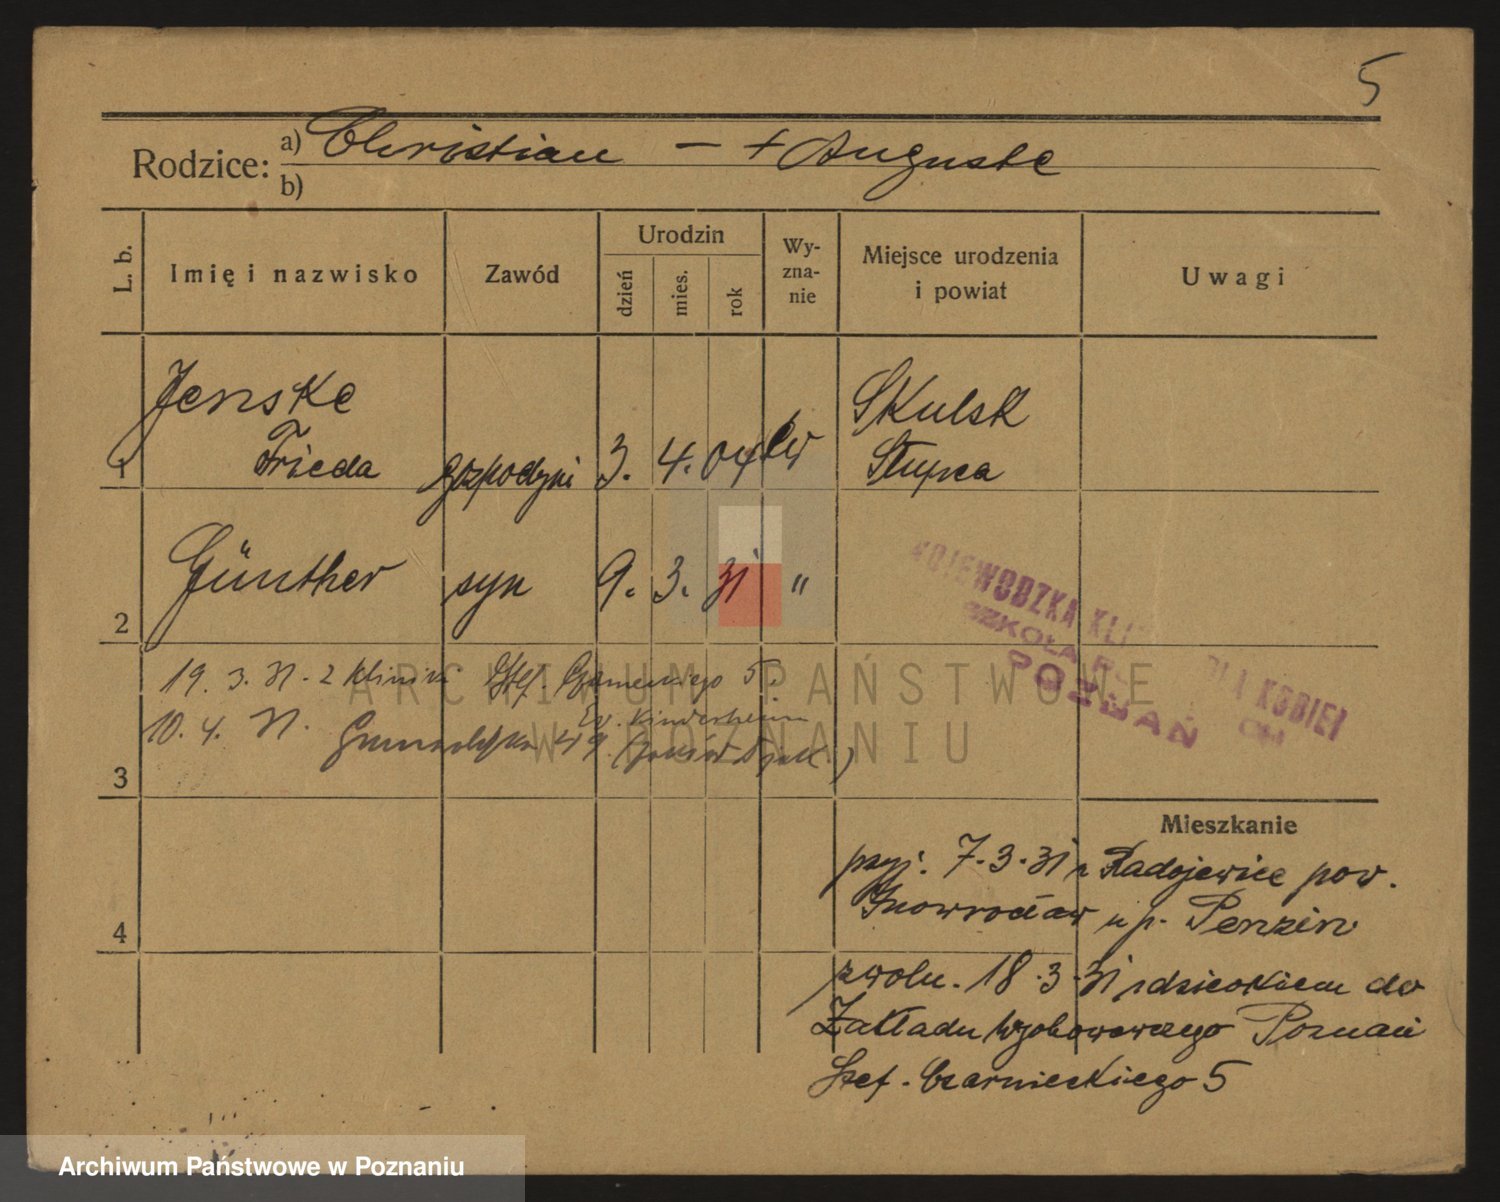 5
Rodzice: a) Christian — + Auguste
b)
L. b.
Imię i nazwisko
Zawód
Urodzin
dzień
mies.
rok
Wy-
zna-
nie
Miejsce urodzenia
i powiat
Uwagi
1
Jenske
Frieda
gospodyni
3. 4. 04
ew
Skulsk
Słupca
2
Günther
syn
9. 3. 31
"
WOJEWÓDZKA KLI DLA KOBIET
SZKOŁA
POZNAŃ
19. 3. 31. z kliniki Stef. Czarneckiego 5.
10. 4. 31.
Ev. Kinderheim
49
3
Mieszkanie
przyj. 7.3.31 z Radojewice pow.
Inowrocław u p. Penzin
4
zwoln. 18.3.31 z dzieckiem do
Zakładu Wychowawczego Poznań
Stef. Czarnieckiego 5
ARCHIWUM PAŃSTWOWE
W POZNANIU
Archiwum Państwowe w Poznaniu